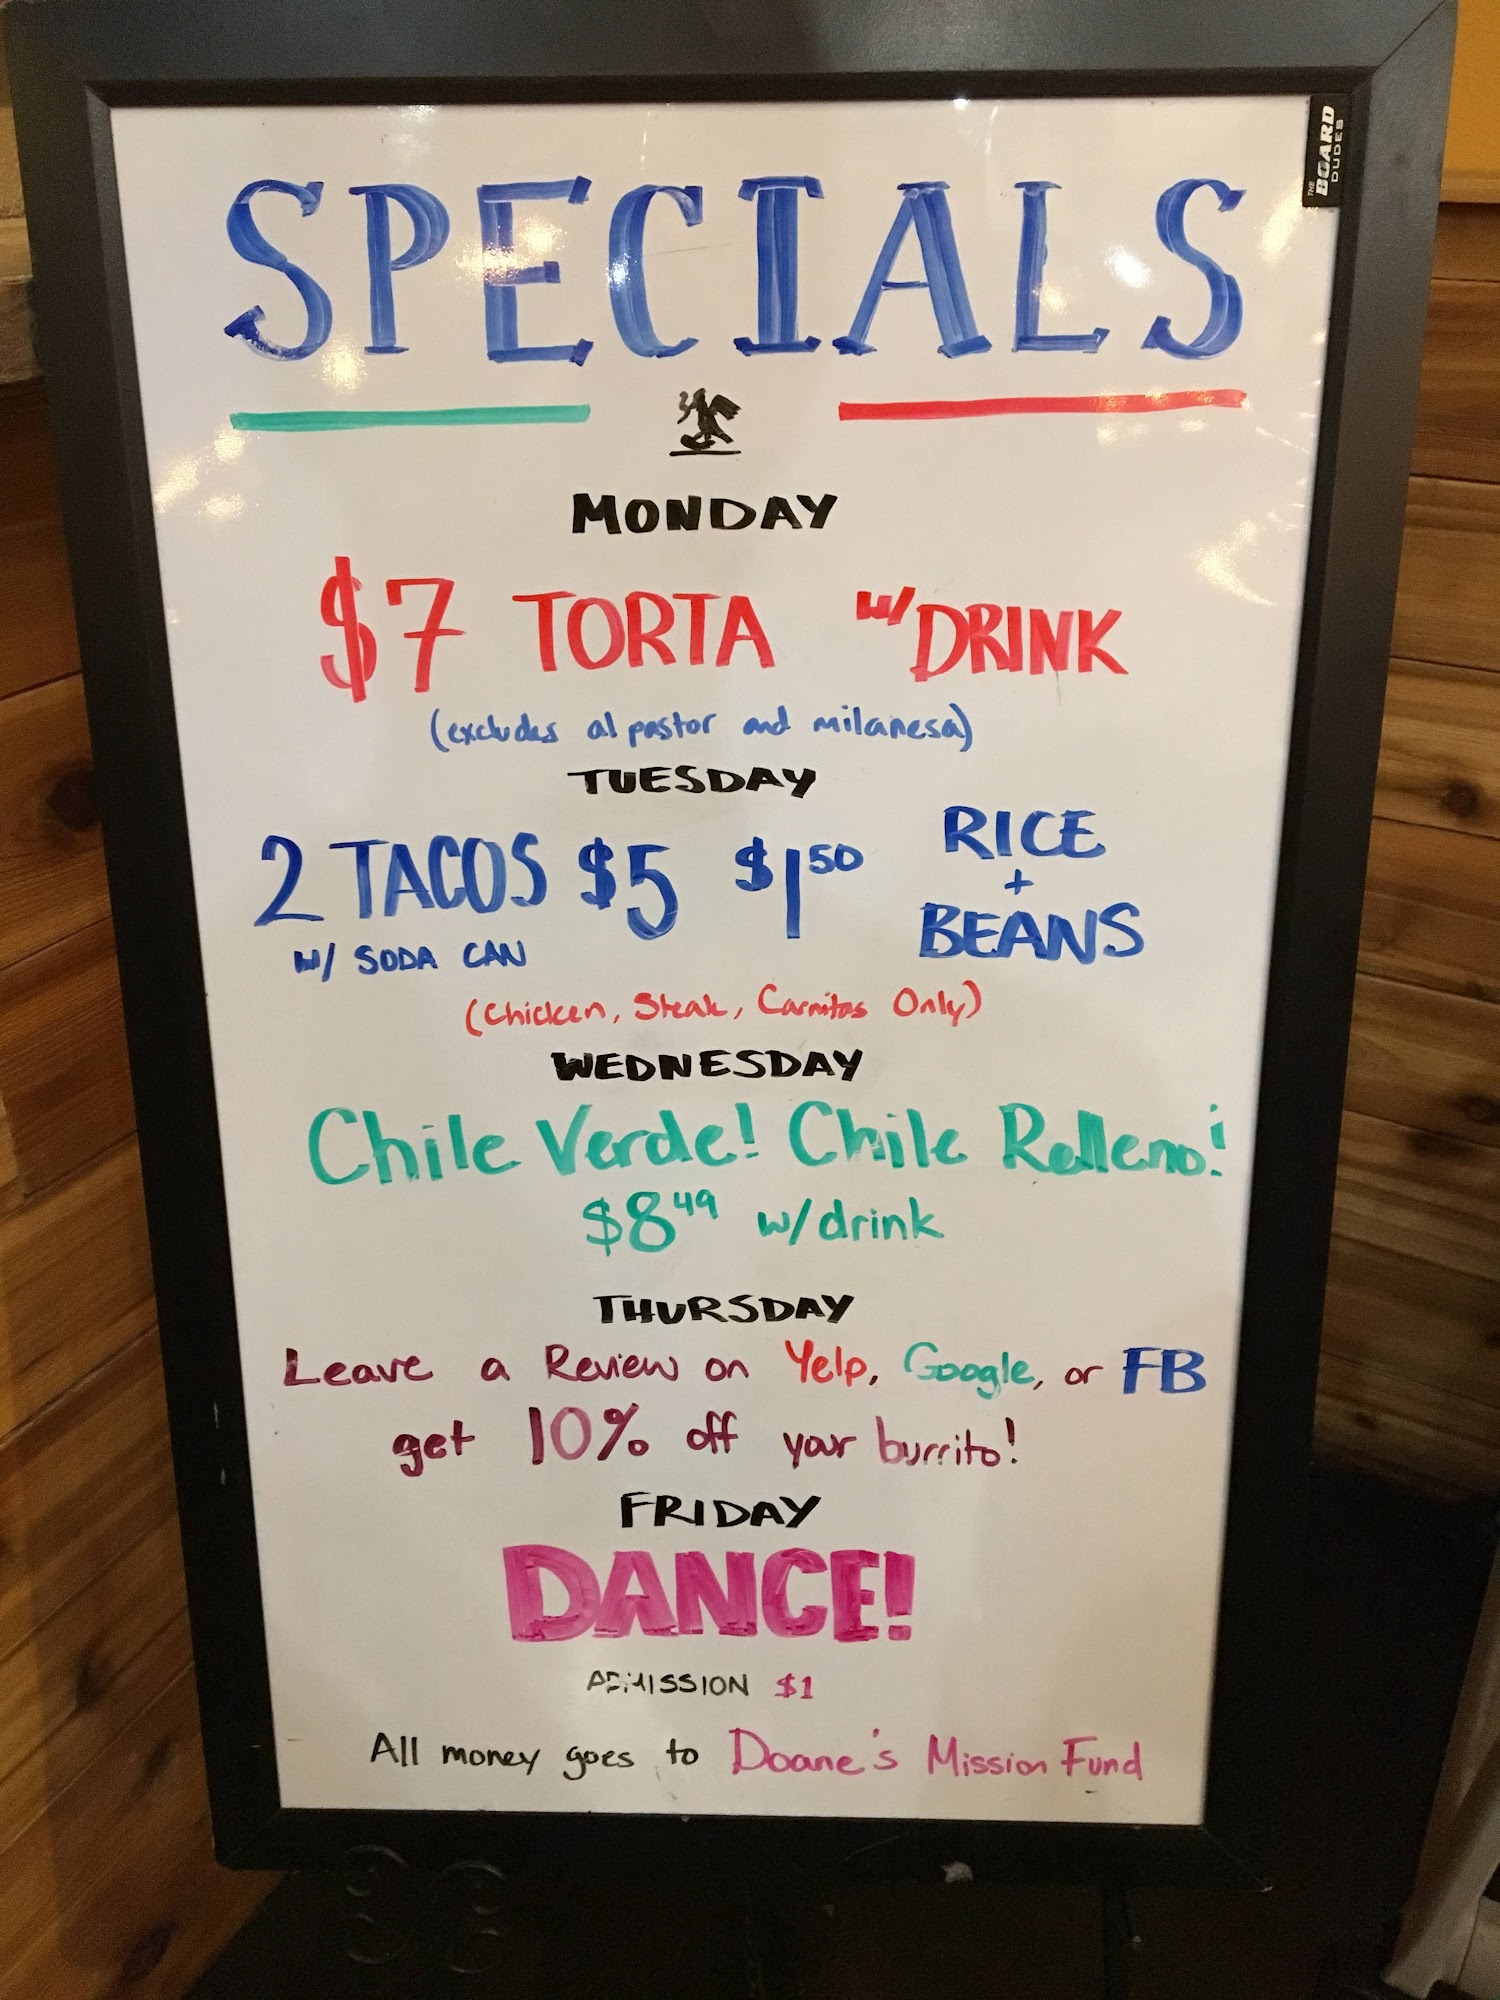 THE BOARD DUDES
SPECIALS
MONDAY
$7 TORTA w/ DRINK
(excludes al pastor and milanesa)
TUESDAY
2 TACOS $5 $1 50 RICE + BEANS
w/ SODA CAN
(Chicken, Steak, Carnitas Only)
WEDNESDAY
Chile Verde! Chile Relleno!
$8 49 w/drink
THURSDAY
Leave a Review on Yelp, Google, or FB
get 10% off your burrito!
FRIDAY
DANCE!
ADMISSION $1
All money goes to Doane's Mission Fund